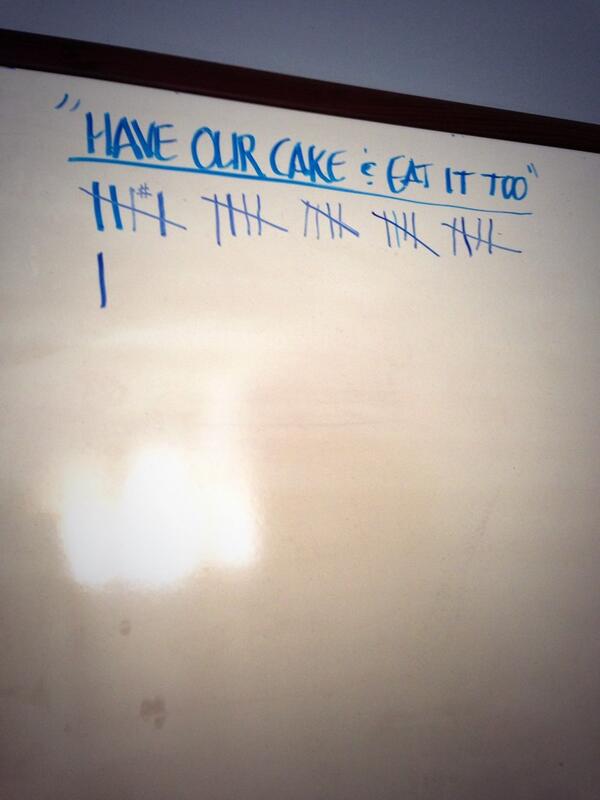 "HAVE OUR CAKE & EAT IT TOO"
#